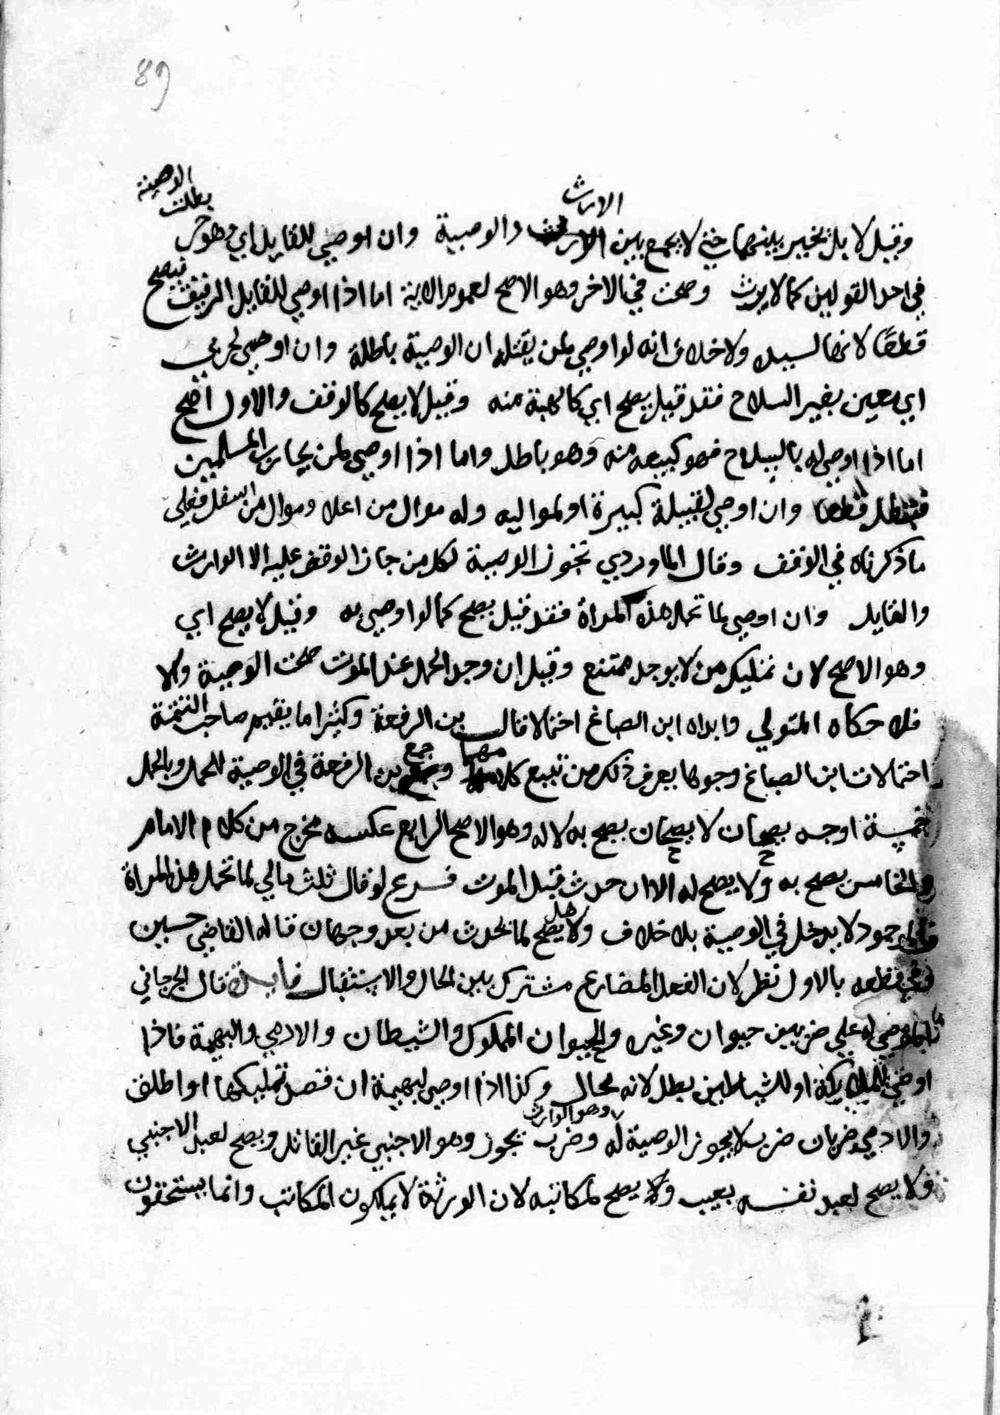 89
الارث
بطلت الوصية
وقيل لا بل يخير بينهما حتى لا يجمع بين والوصية وان اوصي للقاتل اي وهو حر
في احد القولين كما لا يرث وصحت في الاخر وهو الاصح لعموم الاية اما اذا اوصي للقاتل الرقيق فيصح
قطعًا لانها لسيده ولا خلاف انه لو اوصي لمن يقتله ان الوصية باطلة وان اوصي لحربي
اي معين بغير السلاح فقد قيل يصح اي كالهبة منه وقيل لا يصح كالوقف والاول اصح
اما اذا اوصي له بالسلاح فهو كبيعه منه وهو باطل واما اذا اوصي لمن يحارب المسلمين
فتبطل قطعا وان اوصي لقبيلة كبيرة او لمواليه وله موال من اعلا وموال من اسفل فعلي
ما ذكرناه في الوقف وقال الماوردي تجوز الوصية لكل من جاز الوقف عليه الا الوارث
والقاتل وان اوصي لما تحمل هذه المراة فقد قيل يصح كما لو اوصي به وقيل لا يصح اي
وهو الاصح لان تمليك من لا يوجد ممتنع وقيل ان وجد الحمل عند الموت صحت الوصية والا
فلا حكاه المتولي وابداه ابن الصباغ احتمالا قال بن الرفعة وكثيرا ما يقيم صاحب التتمة
احتمالات ابن الصباغ وجوها يعرف ذلك من تتبع كلامهما وجمع بن الرفعة في الوصية للحمل وبالحمل
خمسة اوجه يصحان لا يصحان يصح به لا له وهو الاصح الرابع عكسه مخرج من كلام الامام
والخامس يصح به ولا يصح له الا ان حدث قبل الموت فرع لو قال ثلث مالي لما تحمل هذه المراة
فالموجود لا يدخل في الوصية بلا خلاف وهل يصح لما يحدث من بعد وجهان قاله القاضي حسين
وفي قطعه بالاول نظر لان الفعل المضارع مشترك بين الحال والاستقبال فايدة قال الجرجاني
الموصي له علي ضربين حيوان وغيره والحيوان المملوك والشيطان والادمي والبهيمة فاذا
اوصي للملايكة او للشياطين بطل لانه محال وكذا اذا اوصي لبهيمة ان قصد تمليكها او اطلق
وهو الوارث
والادمي ضربان ضرب لا يجوز الوصية له وضرب يجوز وهو الاجنبي غير القاتل ويصح لعبد الاجنبي
ولا يصح لعبد نفسه ولا يصح لمكاتبه لان الورثة لا يملكون المكاتب وانما يستحقون